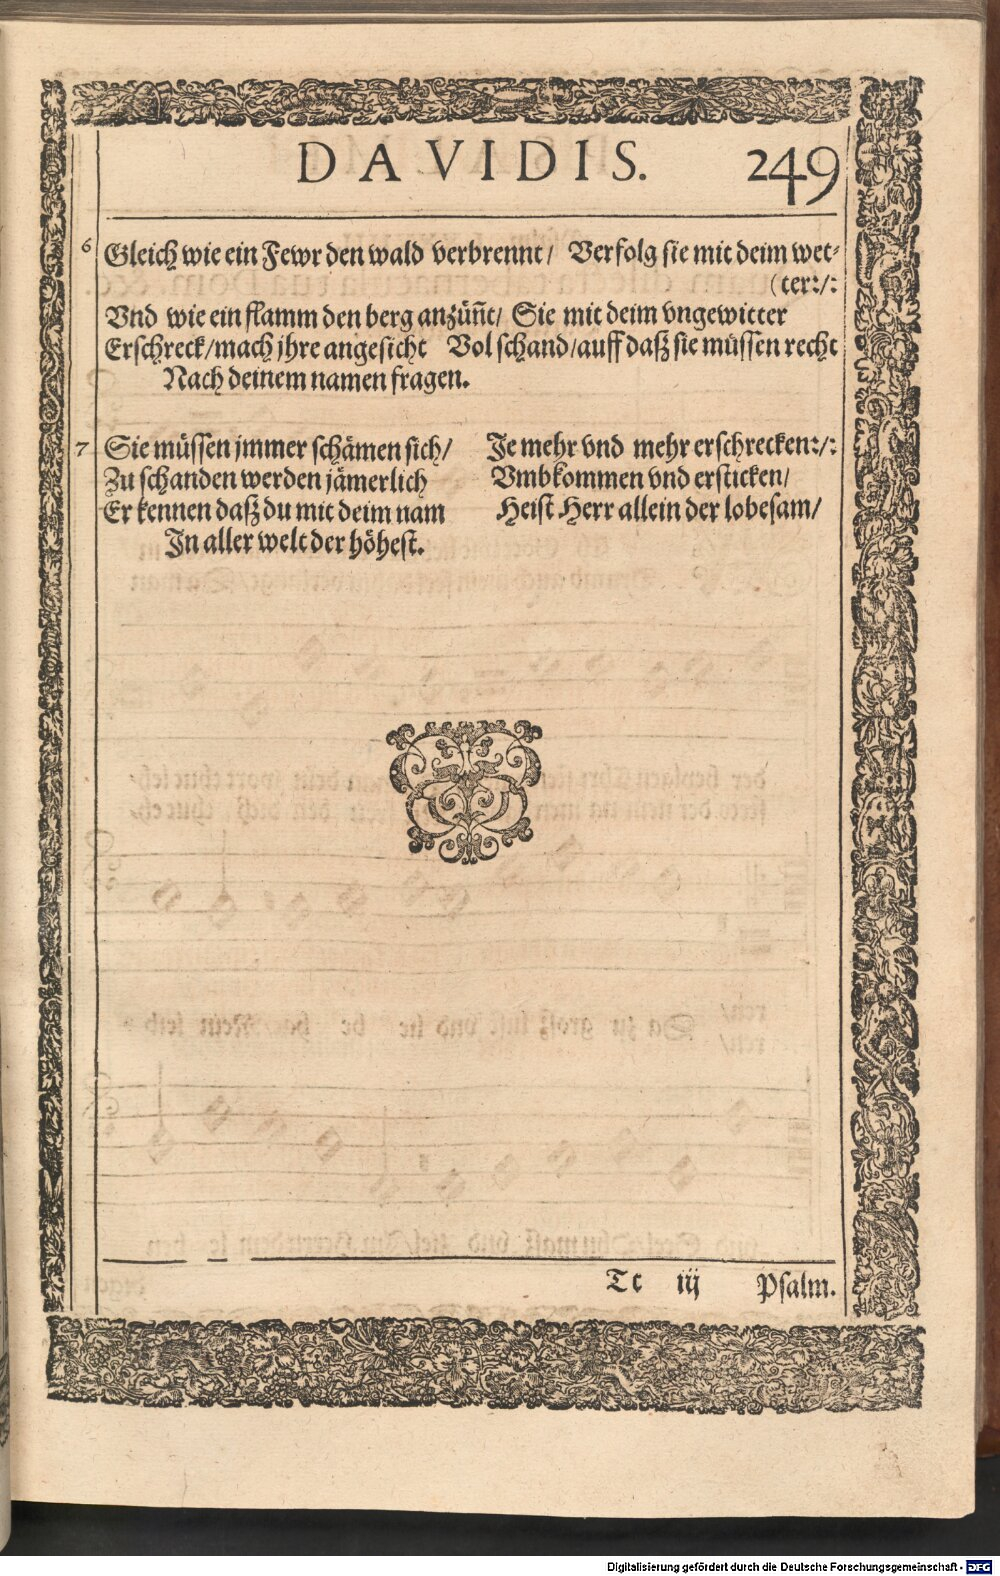 DAVIDIS. 249
6 Gleich wie ein Fewr den wald verbrennt/ Verfolg sie mit deim wet-
(ter:/:
Vnd wie ein flamm den berg anzün̄t/ Sie mit deim vngewitter
Erschreck/mach jhre angesicht Vol schand/auff daß sie müssen recht
Nach deinem namen fragen.
7 Sie müssen jmmer schämen sich/ Je mehr vnd mehr erschrecken:/:
Zu schanden werden jämerlich Vmbkommen vnd ersticken/
Er kennen daß du mit deim nam Heist Herr allein der lobesam/
In aller welt der höhest.
Tt iij Psalm.
Digitalisierung gefördert durch die Deutsche Forschungsgemeinschaft - DFG